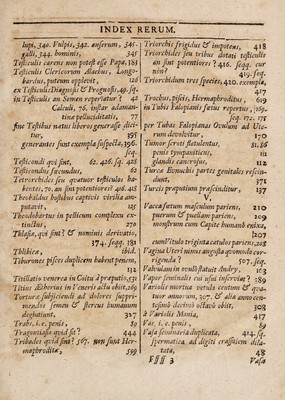 INDEX RERUM.
lupi, 340. Vulpis, 342. anserum, 345.
galli, 244. hominis, 345
Testiculis carens non potest esse Papa, 181
Testiculos Clericorum Diacbus, Longo-
bardus, puteum opplevit, 126
ex Testiculis Diagnosis & Prognosis, 49. sq.
in Testiculis an Semen reperiatur? 42
Calculi, 76. instar adaman-
tina pelluciditatis, 77
sine Testibus natus liberos generasse dici-
tur, 395
generantes sunt exempla suspecta, 396.
seq.
Testicondi qui sint, 62. 426. sq. 428
Testiconditus fœcundus, 62
Tetrorchides seu quatuor testiculis ha-
bentes, 70. an sint potentiores? 416. 418
Theobaldus hostibus captivis virilia am-
putavit, 205
Theodobartus in pellicum complexu ex-
tinctus, 270
Thlasiæ, qui sint? & nominis derivatio,
174. seqq. 181
Thlibiæ, ibid.
Thiurones pisces duplicem habent penem,
112
Titillatio venerea in Coitu à prœputio, 59
Titius Æthorius in Veneris actu obiit, 269
Torturæ subjiciendi ad dolores suppri-
mendos semen & stercus humanum
deglutiunt, 327
Trabs, i. e. penis, 89
Tragoniasis quid sit? 444
Tribades quid sint? 567. non sunt Her-
maphroditæ, 599
Triorchis frigidus & impotens, 418
Triorchides seu tribus dotati testiculis
an sint potentiores? 416. seqq. cur
non? 419. seq.
Triorchidum tres species, 420. exempla,
417
Trochus, piscis, Hermaphroditus, 619
in Tubis Falopianis fœtus repertus, 169.
seq. 172. 175
per Tubas Falopianas Ovulum ad Ute-
rum devolvitur, 170
Tumor scroti flatulentus, 51. 86
penis tympaniticus, 111
glandis cancrosus, 112
Turcæ Eunuchis partes genitales resecin-
dunt, 371
Turcis præputium præscinditur, 137
V.
Vacca fœtum masculum pariens, 210
puerum & puellam pariens, 209
monstrum cum Capite humano enixa,
207
cum Vitulis triginta catulos pariens, 208
Vagina Uteri nimis angusta quomodo cor-
rigenda? 507. seq.
Vabulanum monosti statuit Andry, 103
Vapor seminalis cui usui inserviat? 389
Variolis mortua vetula centum & qua-
tuor annorum, 307. & alia anno cen-
tesimo decimo octavo obiit, 308
à Variolis Mania, 417
Vas, i. e. penis, 89
Vasa seminaria duplicata, 414. sq.
spermatica ad digiti crassitiem dila-
tata, 48
Ffff 3
Vasa